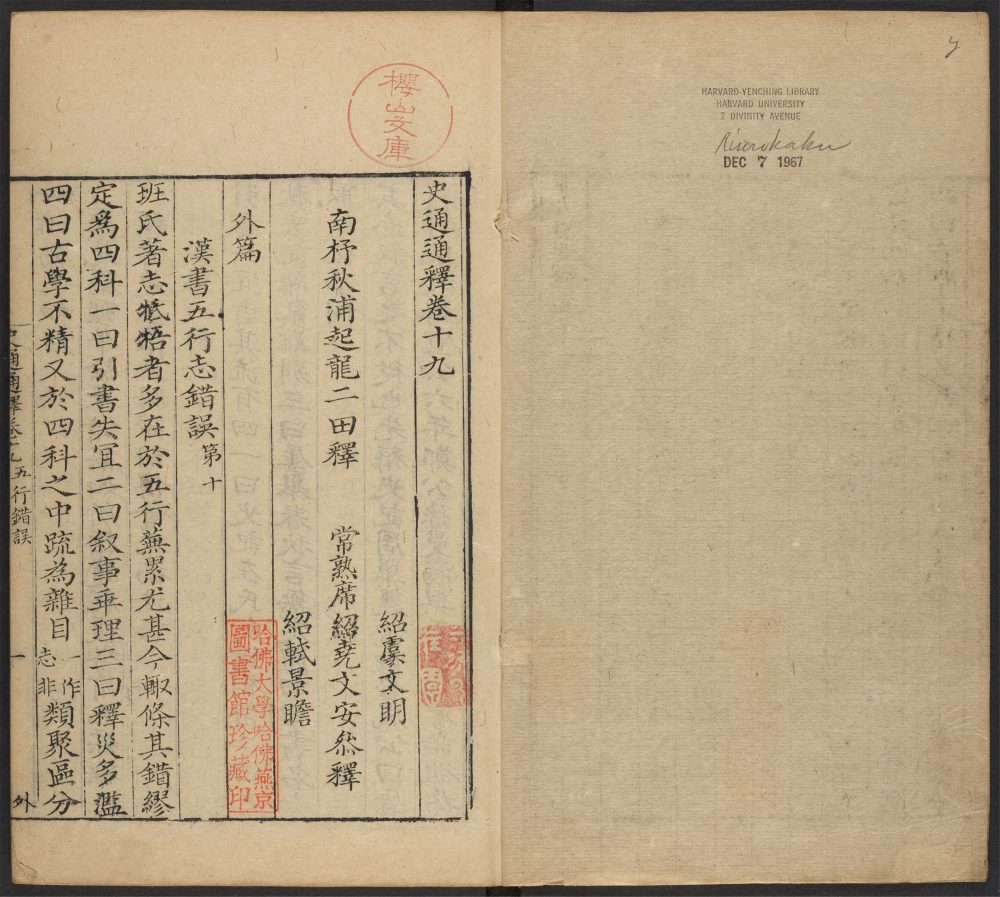 HARVARD-YENCHING LIBRARY
HARVARD UNIVERSITY
2 DIVINITY AVENUE
DEC 7 1967
櫻山文庫
史通通釋卷十九
紹虞文明
南杼秋浦起龍二田釋 常熟席紹堯文安叅釋
紹軾景瞻
外篇
漢書五行志錯誤第十
班氏著志牴牾者多在於五行蕪累尤甚今輙條其錯繆
定為四科一曰引書失宜二曰叙事乖理三曰釋災多濫
四曰古學不精又於四科之中疏為雜目一作志非類聚區分
史通通釋卷十九 五行錯誤 一 外
哈佛大學哈佛燕京
圖書館珍藏印